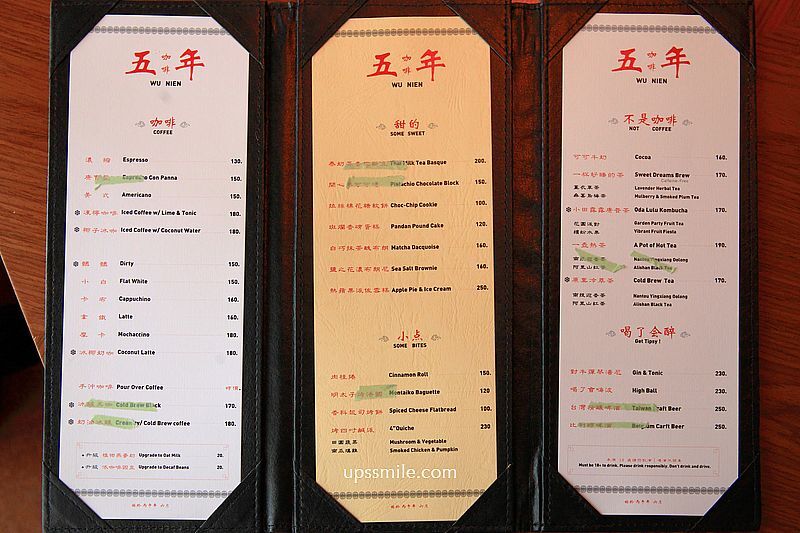 五咖啡年
WU NIEN
咖啡
COFFEE
濃縮 Espresso 130.
Espresso Con Panna 150.
美式 Americano 150.
Iced Coffee w/ Lime & Tonic 180.
椰子冰咖 Iced Coffee w/ Coconut Water 180.
髒髒 Dirty 150.
小白 Flat White 150.
卡布 Cappuchino 160.
拿鐵 Latte 160.
摩卡 Mochaccino 180.
冰椰奶咖 Coconut Latte 180.
手沖咖啡 Pour Over Coffee 時價.
Cold Brew Black 170.
Creamy/ Cold Brew coffee 180.
• 升級 植物燕麥奶 Upgrade to Oat Milk 20.
• 升級 Upgrade to Decaf Beans 20.
五咖啡年
WU NIEN
甜的
SOME SWEET
Thai Milk Tea Basque 200.
開心 Pistachio Chocolate Block 150.
Choc-Chip Cookie 100.
斑斕香磅蛋糕 Pandan Pound Cake 120.
白巧抹茶 Matcha Dacquoise 160.
鹽之花濃布朗尼 Sea Salt Brownie 160.
熱蘋果派佐雪糕 Apple Pie & Ice Cream 250.
小点
SOME BITES
肉桂捲 Cinnamon Roll 150.
明太子 Mentaiko Baguette 120
香料起司烤餅 Spiced Cheese Flatbread 100.
烤四吋鹹派 4"Quiche 230
田園蔬菜 Mushroom & Vegetable
南瓜燻雞 Smoked Chicken & Pumpkin
五咖啡年
WU NIEN
不是咖啡
NOT COFFEE
可可牛奶 Cocoa 160.
一樣好睡的茶 Sweet Dreams Brew 170.
Caffeine-Free
薰衣草茶 Lavender Herbal Tea
桑葚烏梅茶 Mulberry & Smoked Plum Tea
小田露露康普茶 Oda Lulu Kombucha 170.
花園派對 Garden Party Fruit Tea
繽紛水果 Vibrant Fruit Fiesta
一壺熱茶 A Pot of Hot Tea 190.
Nantou Yingxiang Oolong
阿里山紅茶 Alishan Black Tea
Cold Brew Tea 170.
南投迎香茶 Nantou Yingxiang Oolong
阿里山紅茶 Alishan Black Tea
喝了会醉
Get Tipsy !
對半彈琴湯尼 Gin & Tonic 230.
喝了會嗨波 High Ball 230.
台灣 Taiwan Craft Beer 250.
比利時 Belgium Carft Beer 250.
Must be 18+ to drink. Please drink responsibly. Don't drink and drive.
upssmile.com